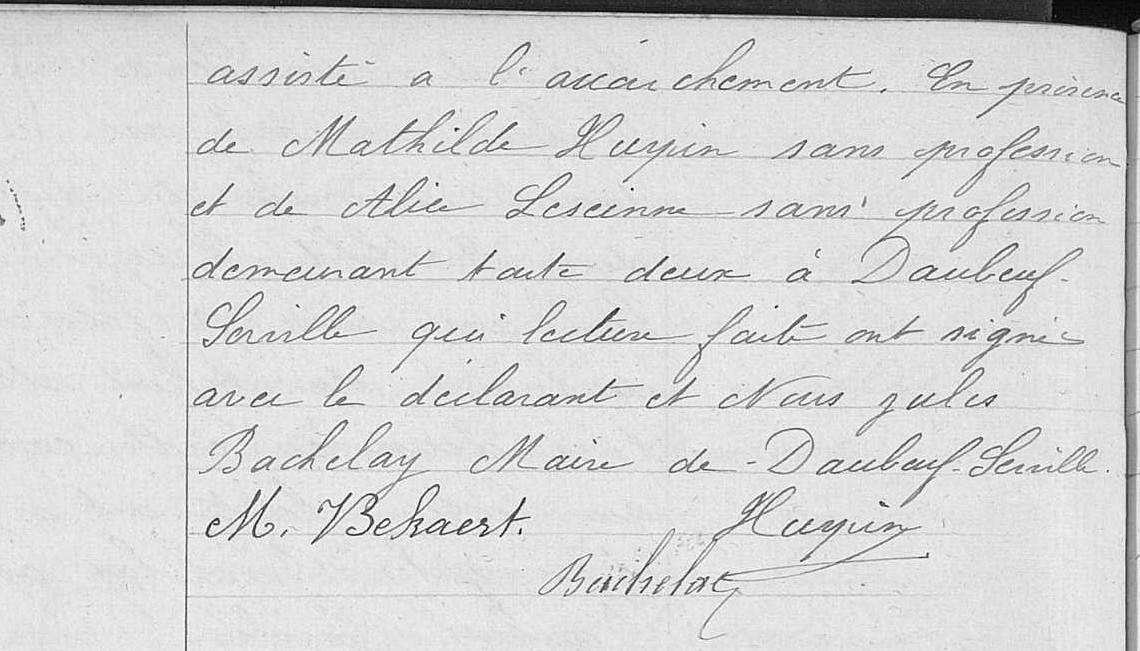 assisté a l'accouchement. En présence
de Mathilde Hupin sans profession
et de Alice Leseinne sans profession
demeurant toute deux à Daubeuf-
Serville qui lecture faite ont signé
avec le déclarant et Nous Jules
Bachelay Maire de Daubeuf-Serville.
M. Bekaert. Hupin
Bachelay